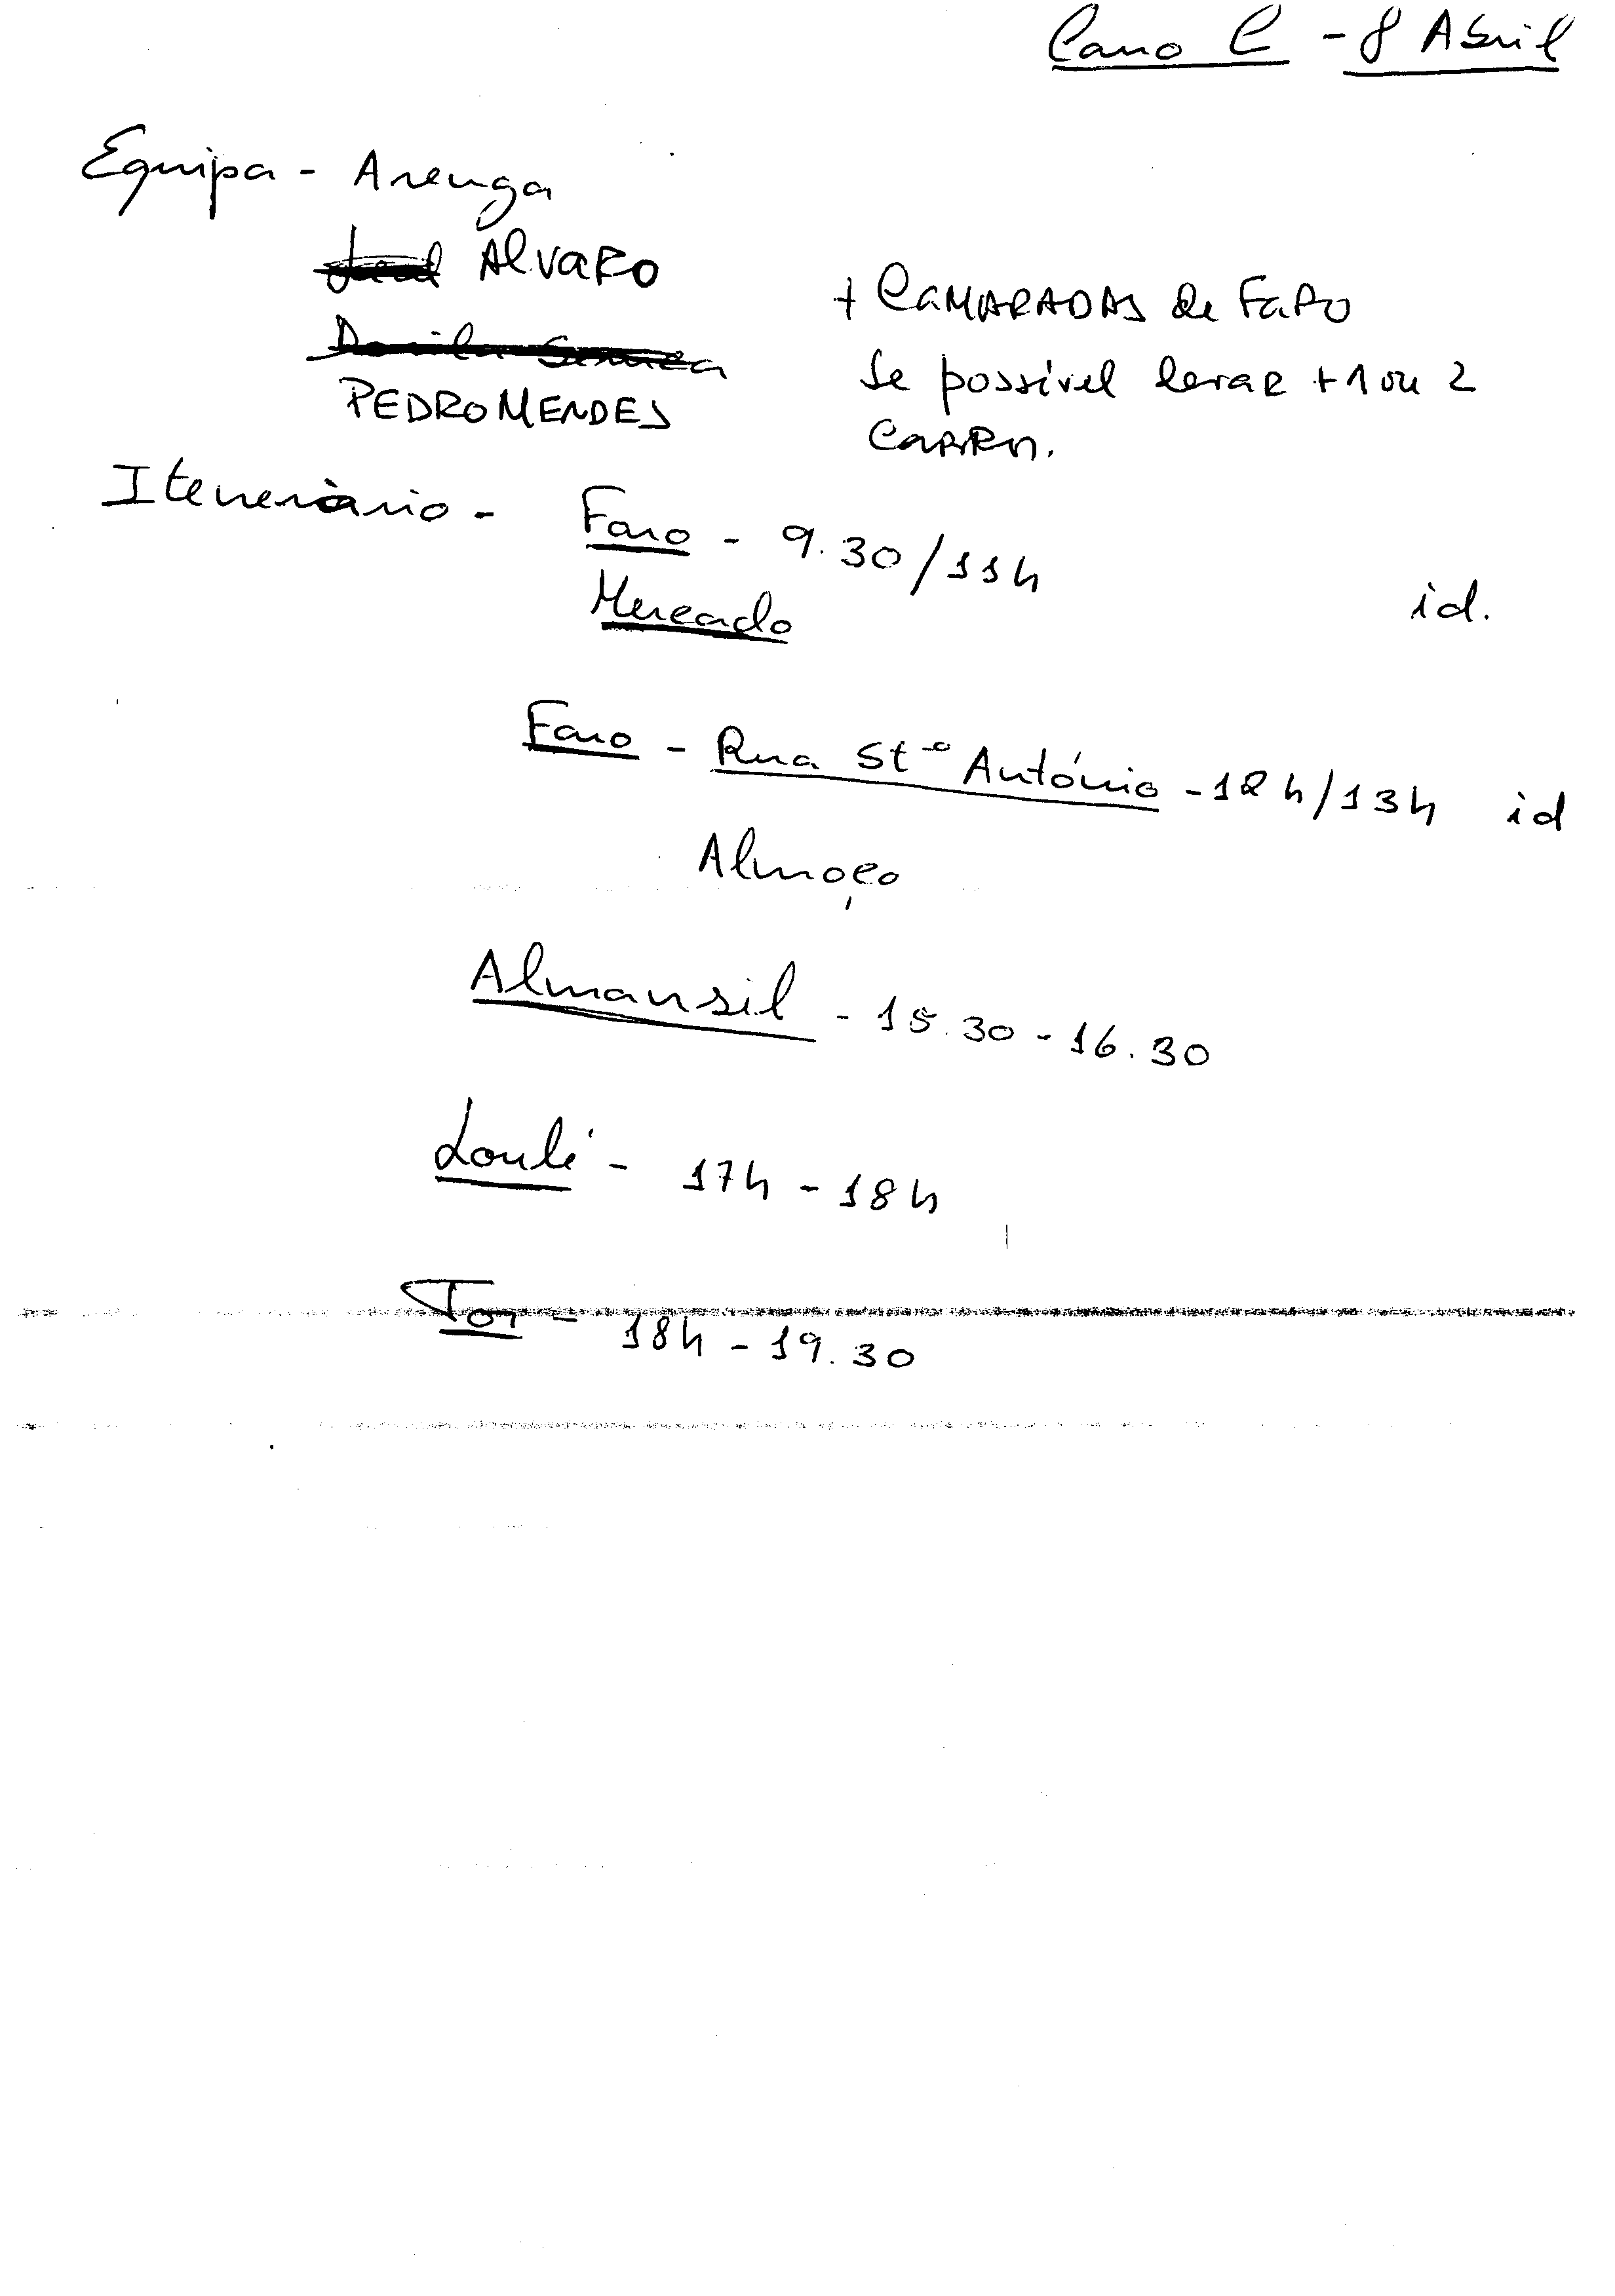 Carro C - 8 Abril
Equipa - Arenga
ALVARO
+ CAMARADAS de FARO
Se possível levar + 1 ou 2
PEDRO MENDES
CARRO.
Itenerário - Faro - 9.30/11h
Mercado id.
Faro - Rua Stº António - 12h/13h id
Almoço
Almansil - 15.30 - 16.30
Loulé - 17h - 18h
Tor - 18h - 19.30